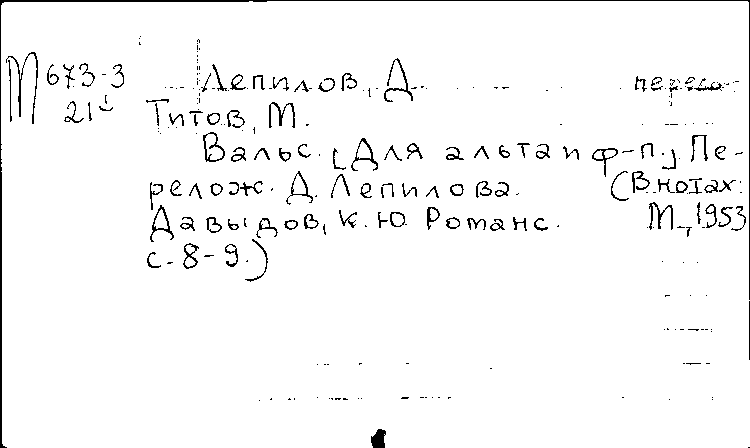 М 673-3 Лепилов, Д. перело-
21 Титов, М.
Вальс. [Для альта и ф-п.] Пе-
релож. Д. Лепилова. (В нотах:
Давыдов, К. Ю. Романс. М., 1953
с. 8-9.)